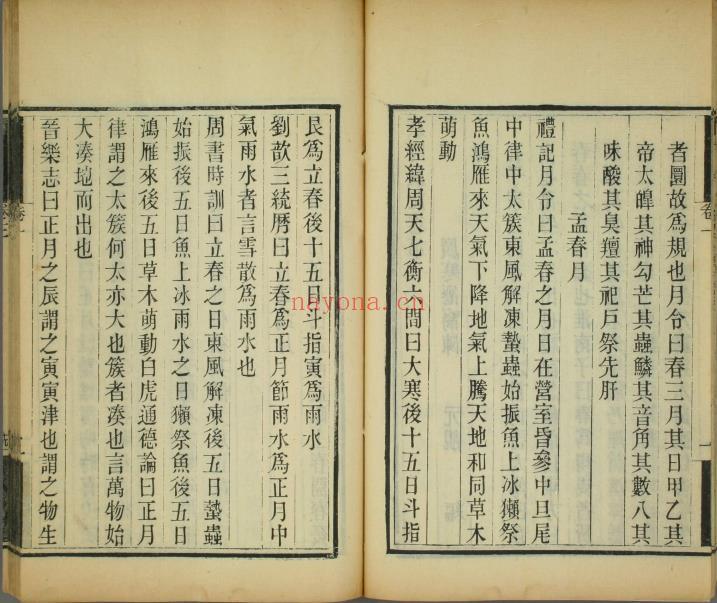 者圜故爲規也月令曰春三月其日甲乙其
帝太皥其神勾芒其蟲鱗其音角其數八其
味酸其臭羶其祀戶祭先肝
孟春月
禮記月令曰孟春之月日在營室昏參中旦尾
中律中太簇東風解凍蟄蟲始振魚上冰獺祭
魚鴻雁來天氣下降地氣上騰天地和同草木
萌動
孝經緯周天七衡六間曰大寒後十五日斗指
艮爲立春後十五日斗指寅爲雨水
劉歆三統曆曰立春爲正月節雨水爲正月中
氣雨水者言雪散爲雨水也
周書時訓曰立春之日東風解凍後五日蟄蟲
始振後五日魚上冰雨水之日獺祭魚後五日
鴻雁來後五日草木萌動白虎通德論曰正月
律謂之太簇何太亦大也簇者湊也言萬物始
大湊地而出也
晉樂志曰正月之辰謂之寅寅津也謂之物生
卷一
nayona.cn